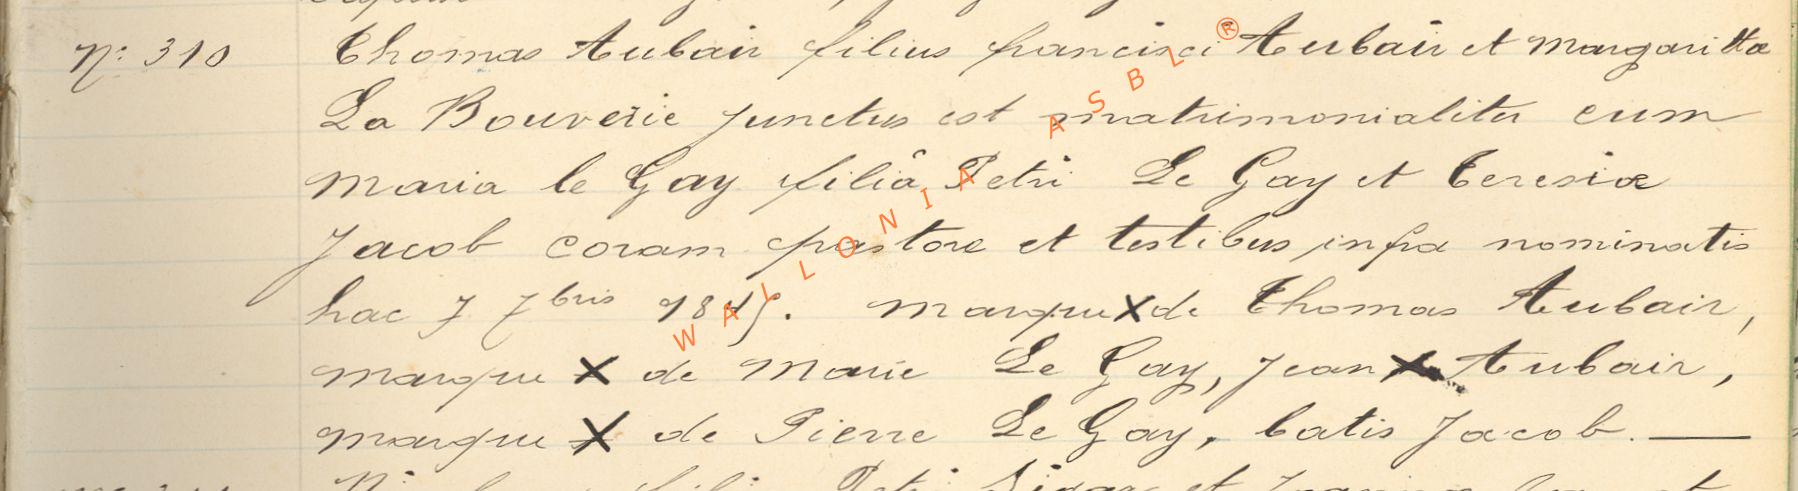 N: 310 Thomas Aubair filius francisci Aubair et margarittæ
La Bouverie junctus est matrimonialiter cum
Maria le Gay filiâ Petri Le Gay et Teresiæ
Jacob coram pastore et testibus infra nominatis
hac 7 7bris. marque X de Thomas Aubair,
marque X de Marie Le Gay, Jean X Aubair,
marque X de Pierre Le Gay, batis Jacob.
WALLONIA ASBL ®